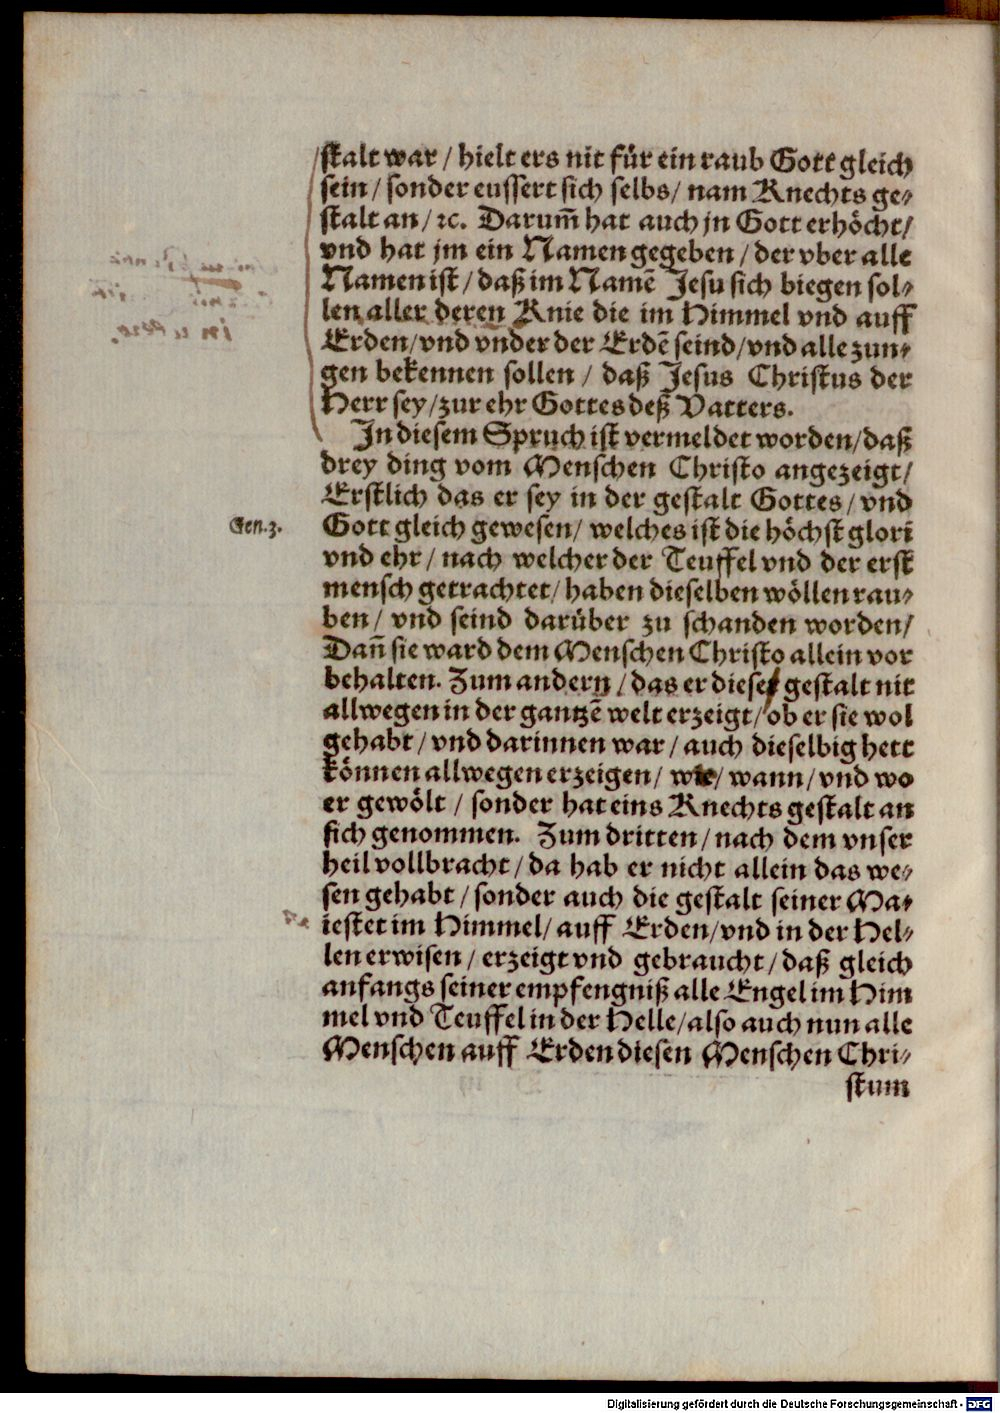 stalt war / hielt ers nit für ein raub Gott gleich
sein / sonder eussert sich selbs / nam Knechts ge⸗
stalt an / ꝛc. Darum̃ hat auch jn Gott erhöcht /
vnd hat jm ein Namen gegeben / der vber alle
Namen ist / daß im Namẽ Jesu sich biegen sol⸗
len aller deren Knie die im Himmel vnd auff
Erden / vnd vnder der Erdẽ seind / vnd alle zun⸗
gen bekennen sollen / daß Jesus Christus der
Herr sey / zur ehr Gottes deß Vatters.
In diesem Spruch ist vermeldet worden / daß
drey ding vom Menschen Christo angezeigt /
Erstlich das er sey in der gestalt Gottes / vnd
Gen. 3.
Gott gleich gewesen / welches ist die höchst glori
vnd ehr / nach welcher der Teuffel vnd der erst
mensch getrachtet / haben dieselben wöllen rau⸗
ben / vnd seind darüber zu schanden worden /
Dañ sie ward dem Menschen Christo allein vor
behalten. Zum andern / das er diese gestalt nit
allwegen in der gantzẽ welt erzeigt / ob er sie wol
gehabt / vnd darinnen war / auch dieselbig hett
können allwegen erzeigen / wie / wann / vnd wo
er gewölt / sonder hat eins Knechts gestalt an
sich genommen. Zum dritten / nach dem vnser
heil vollbracht / da hab er nicht allein das we⸗
sen gehabt / sonder auch die gestalt seiner Ma⸗
iestet im Himmel / auff Erden / vnd in der Hel⸗
len erwisen / erzeigt vnd gebraucht / daß gleich
anfangs seiner empfengniß alle Engel im Him
mel vnd Teuffel in der Helle / also auch nun alle
Menschen auff Erden diesen Menschen Chri⸗
stum
Digitalisierung gefördert durch die Deutsche Forschungsgemeinschaft - DFG